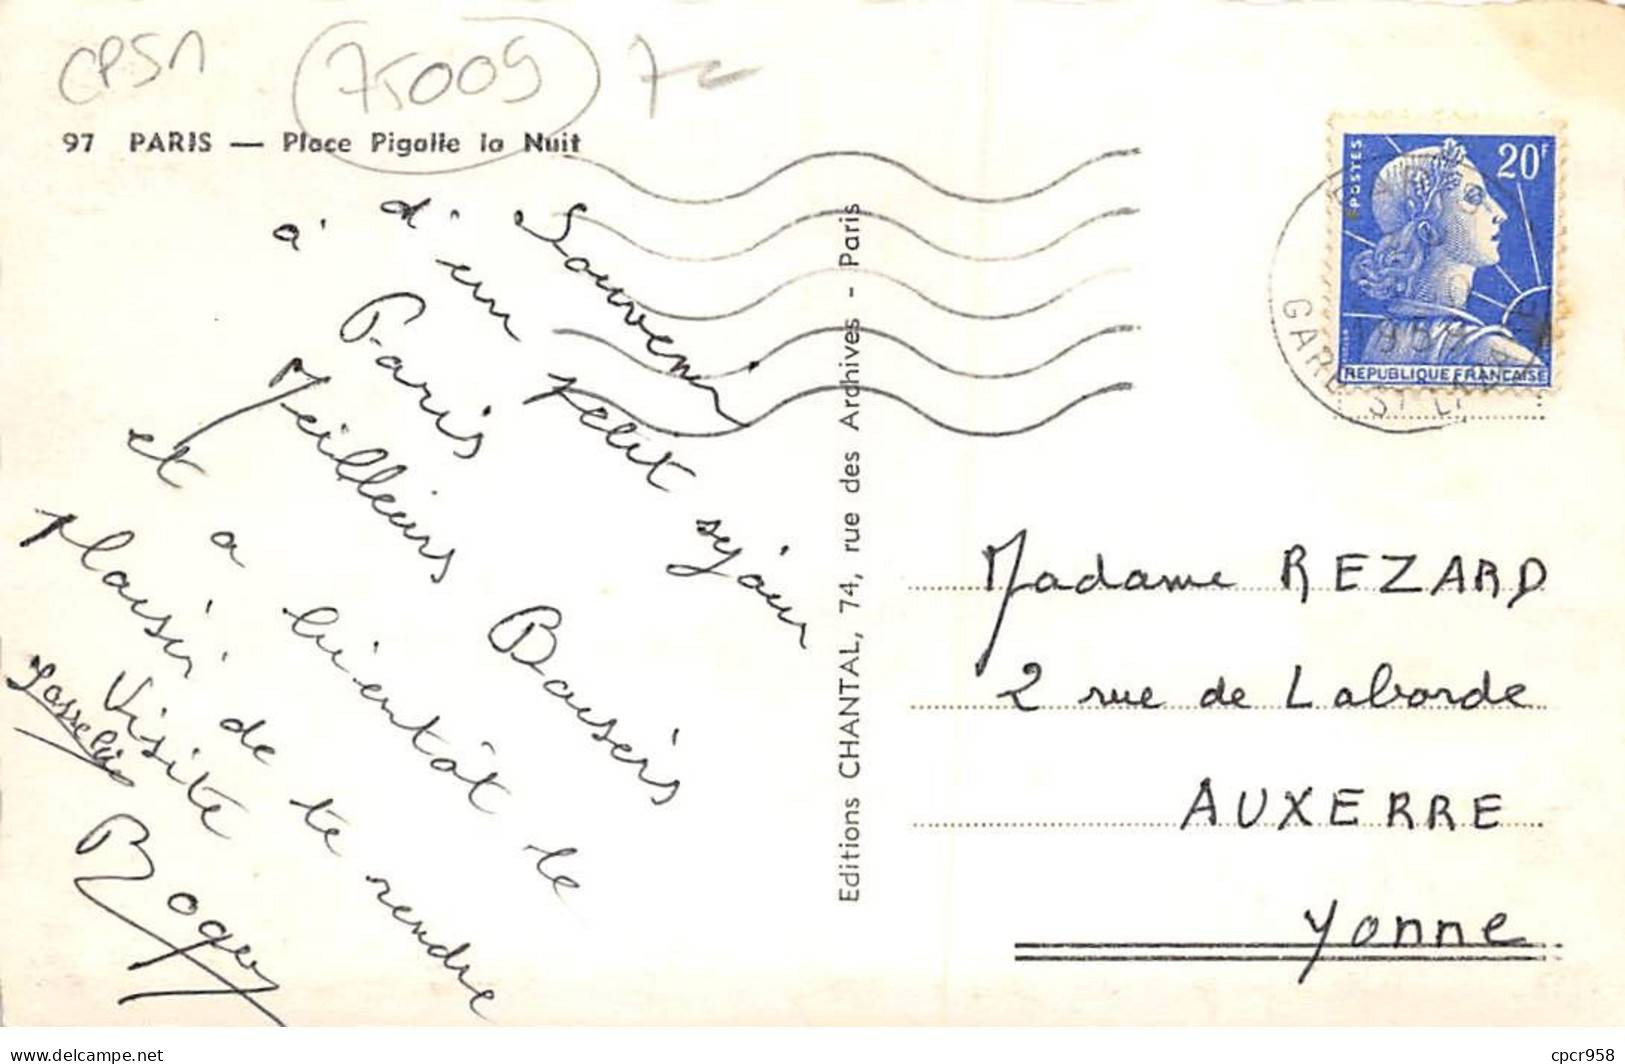 CPSM
75009
97 PARIS — Place Pigalle la Nuit
Souvenir
d'un petit séjour
à Paris
Meilleurs Baisers
et à bientôt le
plaisir de te rendre
Visite
Roger
Editions CHANTAL, 74, rue des Archives - Paris
POSTES
20F
REPUBLIQUE FRANCAISE
GARE ST LAZARE
Madame REZARD
2 rue de Laborde
AUXERRE
Yonne
www.delcampe.net
cpcr958